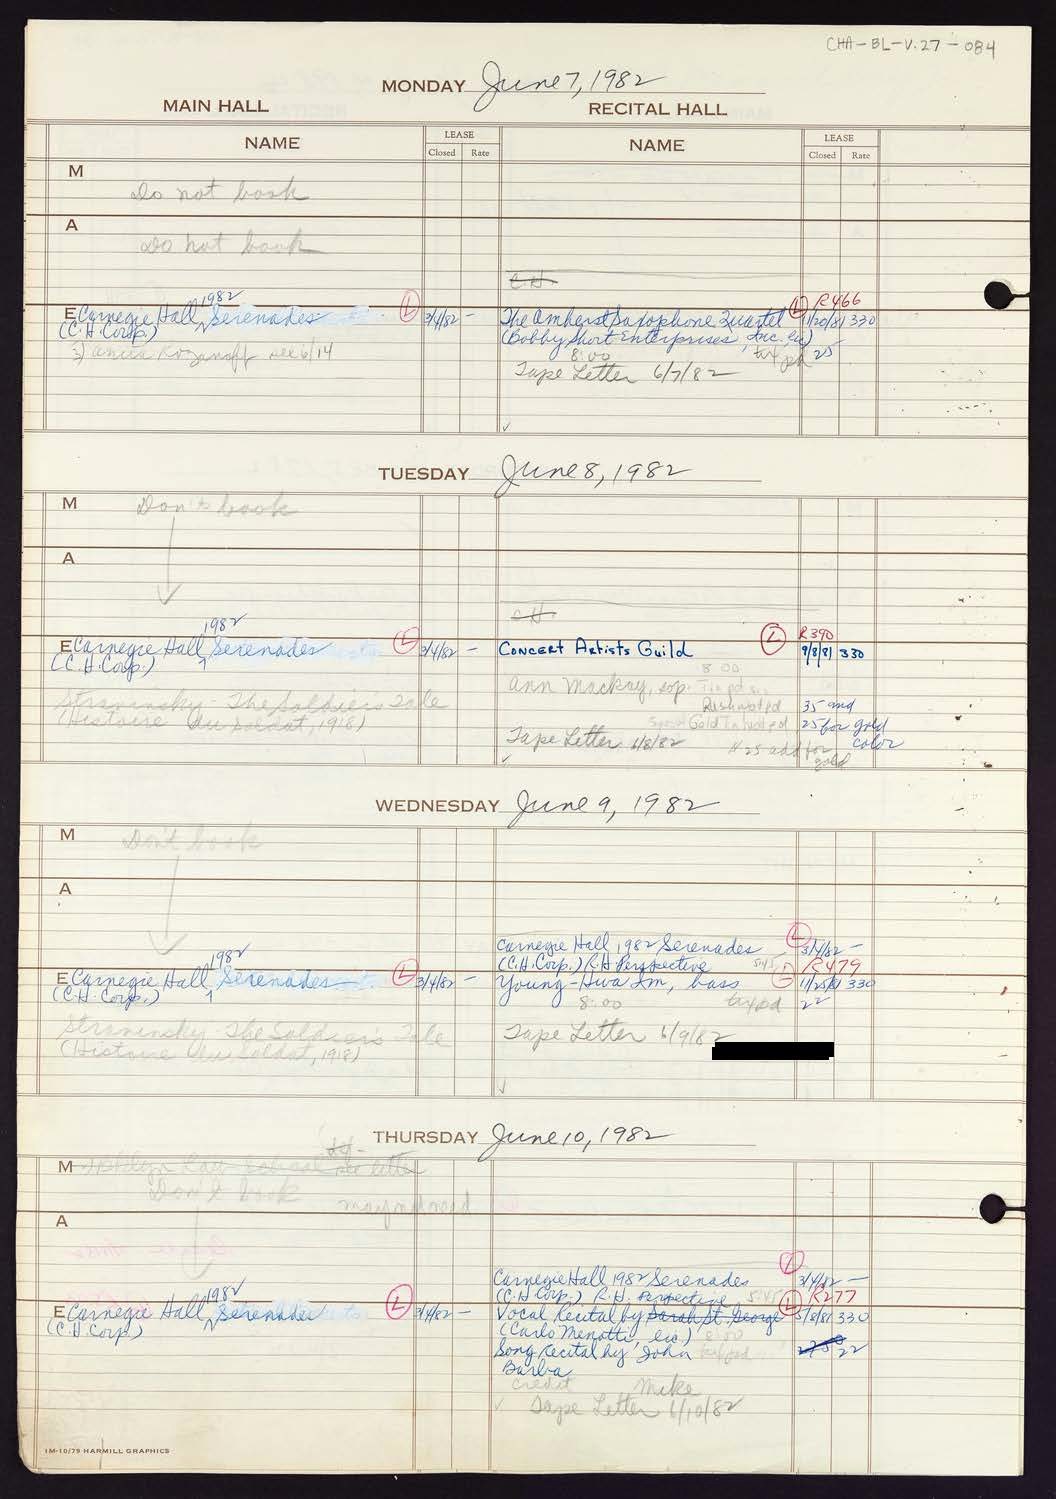 CHA-BL-V.27-084
MONDAY June 7, 1982
MAIN HALL
RECITAL HALL
NAME
LEASE
Closed
Rate
NAME
LEASE
Closed
Rate
M
Do not book
A
Do not book
C H
E Carnegie Hall 1982 Serenades L 3/4/82 -
(C.H. Corp.)
see 6/14
L R466
The Amherst Saxophone Quartet 11/20/81 330
(Bobby Short Enterprises, Inc. lic)
8:00 tax pd 25
Tape Letter 6/7/82
TUESDAY June 8, 1982
M
Don't book
A
C H
E Carnegie Hall 1982 Serenades L 3/4/82 -
(C.H. Corp.)
Stravinsky - The Soldier's Tale
(Histoire du Soldat, 1918)
L R390
Concert Artists Guild 9/8/81 330
8 00
Ann Mackay, sop.
35 and
25 for gold
color
Tape Letter 6/8/82
25 add for
gold
WEDNESDAY June 9, 1982
M
Don't book
A
E Carnegie Hall 1982 Serenades L 3/4/82 -
(C.H. Corp.)
Stravinsky - The Soldier's Tale
(Histoire du Soldat, 1918)
L
Carnegie Hall 1982 Serenades 3/4/82 -
(C.H. Corp.) R.H. Perspective 5:45 L R479
Young-Hwa Im, bass 11/25/81 330
8:00 tax pd 22
Tape Letter 6/9/82
THURSDAY June 10, 1982
M
Law School see letter
Don't book
A
E Carnegie Hall 1982 Serenades L 3/4/82 -
(C.H. Corp.)
L
Carnegie Hall 1982 Serenades 3/4/82 -
(C.H. Corp.) R.H. Perspective 5:45 L R277
Vocal Recital by Sarah St. George 5/8/81 330
(Carlo Menotti, lic.) 8:00
Song Recital by John tax pd 22
Barba
credit Mike
Tape Letter 6/10/82
1M-10/79 HARMILL GRAPHICS